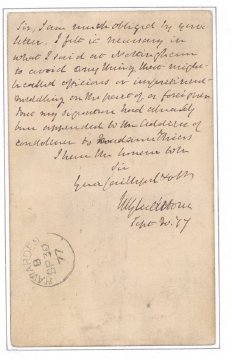 Sir, I am much obliged by your
letter. I felt it necessary in
what I said at Nottingham
to avoid anything that might
be called officious or
meddling on the part of a foreigner
but my signature had already
been appended to the Address of
condolence to Madame Thiers
I have the honour
Sir
Your faithful
WEGladstone
Sept 30. 77
HAWARDEN
B
SP 30
77